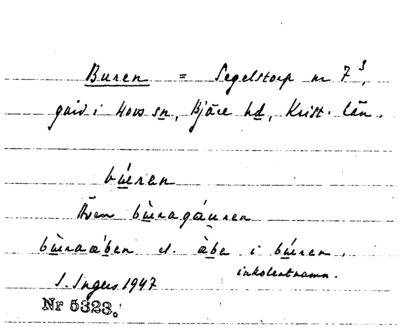 Buren = Segelstorp nr 7³,
gård i Hovs sn, Bjäre hd, Krist. län.
bùren
Även bùragáuren
bùraáben el. àbe i bùren.
inkolentnamn.
I. Ingers 1947
Nr 5323.